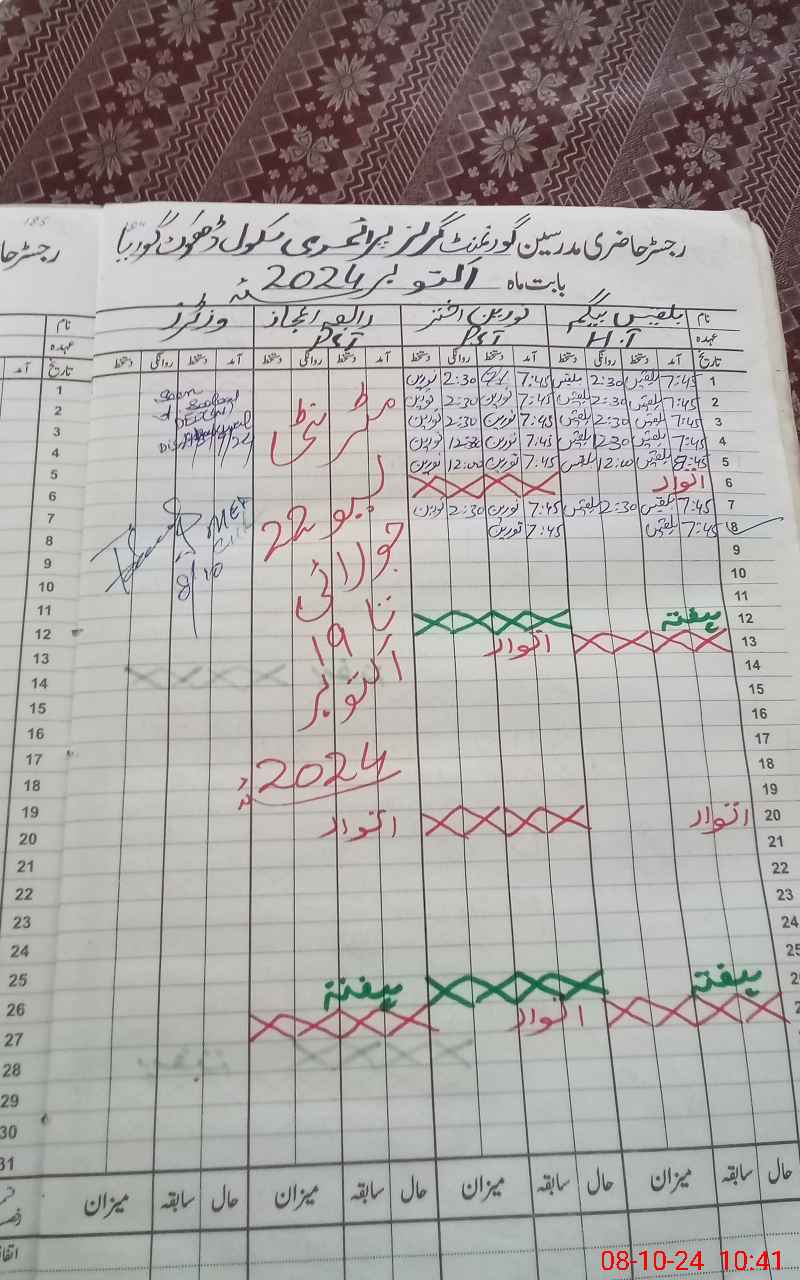 رجسٹر حاضری مدرسین گورنمنٹ گرلز پرائمری سکول
بابت ماہ اکتوبر 2024
نام بلقیس بیگم نورین اختر رابعہ اعجاز وزٹرز
عہدہ H.T PST PST
تاریخ آمد دستخط روانگی دستخط آمد دستخط روانگی دستخط آمد دستخط روانگی دستخط آمد دستخط روانگی دستخط
1 7:45 بلقیس 2:30 بلقیس 7:45 2:30 نورین
2 7:45 بلقیس 2:30 بلقیس 7:45 نورین 2:30 نورین
3 7:45 بلقیس 2:30 بلقیس 7:45 نورین 2:30 نورین
4 7:45 بلقیس 12:30 بلقیس 7:45 نورین 12:30 نورین
5 8:45 بلقیس 12:00 بلقیس 7:45 نورین 12:00 نورین
6 اتوار
7 7:45 بلقیس 2:30 بلقیس 7:45 نورین 2:30 نورین
8 7:45 بلقیس 7:45 نورین
9
10
11
12 ہفتہ
13 اتوار
14
15
16
17
18
19
20 اتوار اتوار
21
22
23
24
25
2 ہفتہ ہفتہ
2 اتوار
میٹرنٹی
لیو 22
جولائی
تا 19
اکتوبر
2024
Seen
8/10
حال سابقہ میزان حال سابقہ میزان حال سابقہ میزان حال سابقہ میزان
185
رجسٹر حا
نام
عہدہ
تاریخ آمد
1
2
3
4
5
6
7
8
9
10
11
12
13
14
15
16
17
18
19
20
21
22
23
24
25
26
27
28
29
30
31
08-10-24 10:41